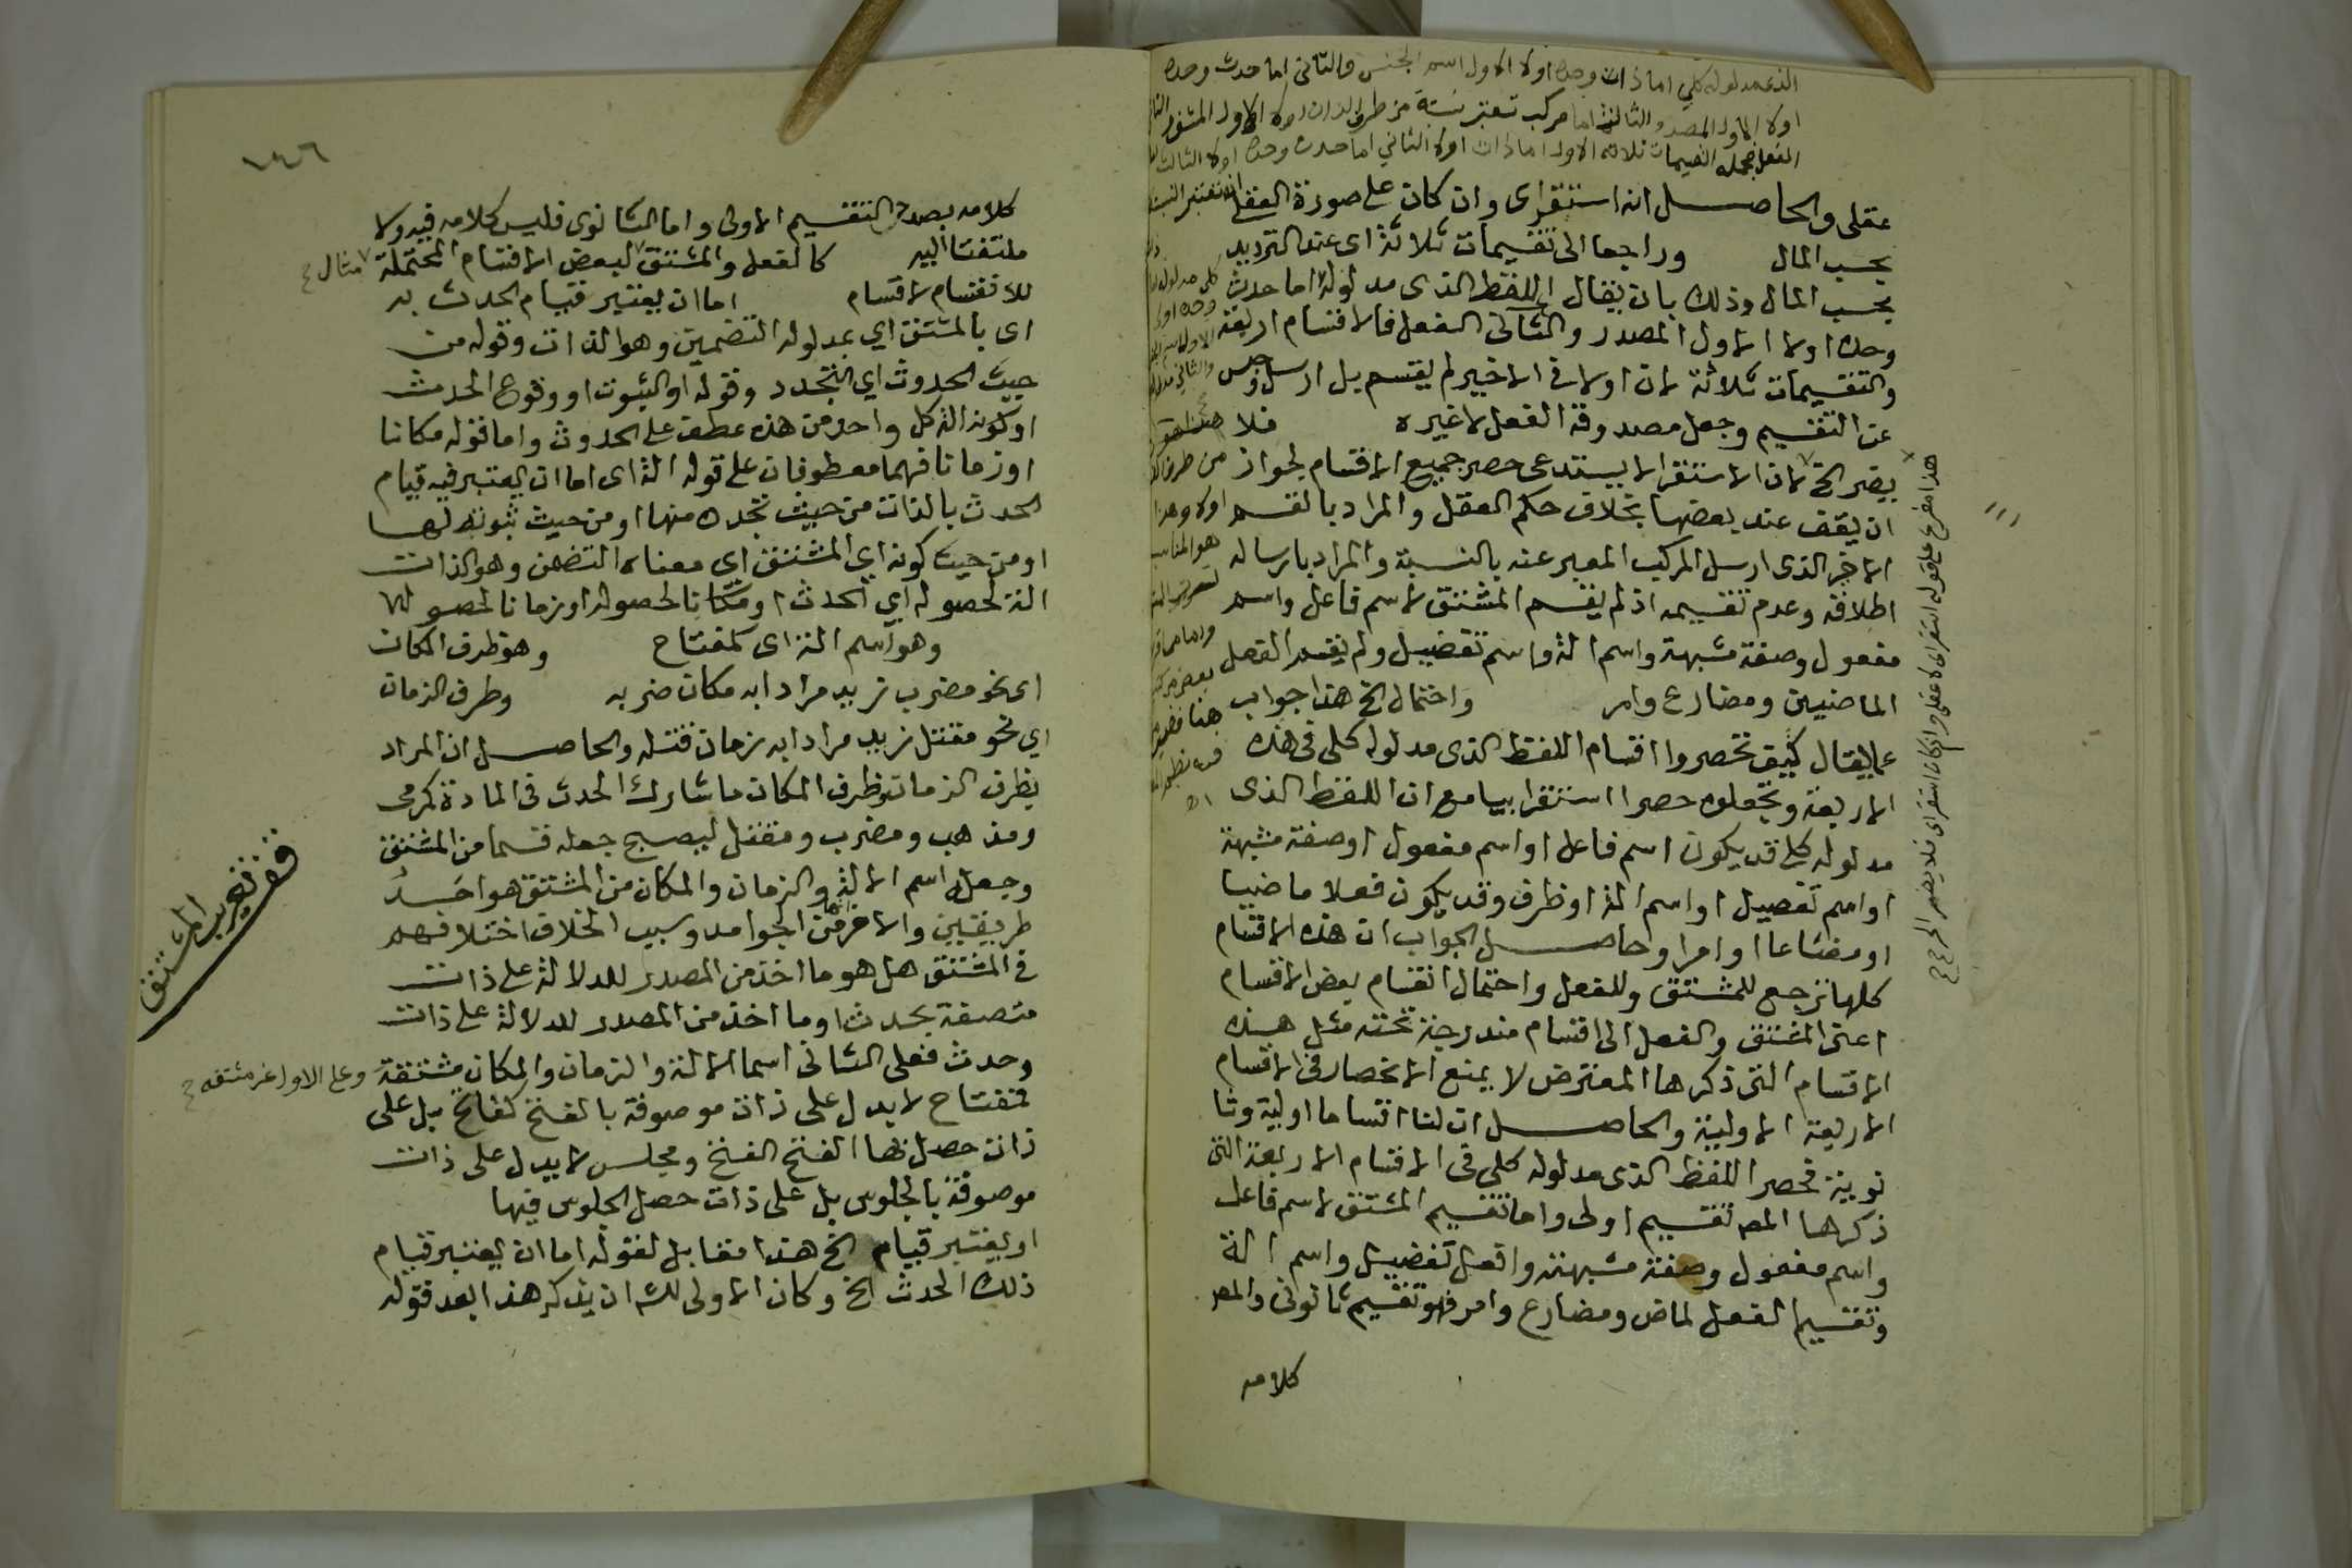 الذى مدلوله كلي اما ذات وحده اولا الاول اسم الجنس والثانى اما حدث وحده
اولا الاول المصدر والثالث اما مركب تعتبر نسبة من طرف الذات اولا الاول المشتق
الفعل فجملة التقسيمات ثلاثة الاول اما ذات اولا الثاني اما حدث وحده اولا الثالث
عقلى والحاصل انه استقراى وان كان على صورة العقلى
بحسب المال وراجعا الى تقسيمات ثلاثة اى عند الترديد
بحسب المال وذلك بان يقال اللفظ الذى مدلوله اما حدث
وحده اولا الاول المصدر والثانى الفعل فالاقسام اربعة
والتقسيمات ثلاثة لان اولا فى الاخير لم يقسم بل ارسل
عن التقسيم وجعل مصدوقه الفعل لا غيره فلا
يضر الخ لان الاستقرا لا يستدعى حصر جميع الاقسام لجواز
ان يقف عند بعضها بخلاف حكم العقل والمراد بالقسم
الاخر الذى ارسل المركب المعبر عنه بالنسبة والمراد بارساله
اطلاقه وعدم تقسيمه اذ لم يقسم المشتق لاسم فاعل واسم
مفعول وصفة مشبهة واسم الة واسم تفضيل ولم يقسم الفعل
الماضيين ومضارع وامر واحتمال الخ هذا جواب
عما يقال كيف تحصروا اقسام اللفظ الذى مدلوله كلى فى هذه
الاربعة وتجعلوه حصرا استقرابيا مع ان اللفظ الذى
مدلوله كلي قد يكون اسم فاعل او اسم مفعول او صفة مشبهة
او اسم تفصيل او اسم الة او ظرف وقد يكون فعلا ماضيا
او مضارعا او امرا وحاصل الجواب ان هذه الاقسام
كلها ترجع للمشتق وللفعل واحتمال انقسام بعض الاقسام
اعنى المشتق والفعل الى اقسام مندرجة تحته مثل هذه
الاقسام التى ذكرها المعترض لا يمنع الانحصار فى الاقسام
الاربعة الاولية والحاصل ان لنا اقساما اولية وثا
نوية فحصر اللفظ الذى مدلوله كلى فى الاقسام الاربعة التى
ذكرها المص تقسيم اولى واما تقسيم المشتق لاسم فاعل
واسم مفعول وصفة مشبهة وافعل تفضيل واسم الة
وتقسيم الفعل لماض ومضارع وامر فهو تقسيم ثانوى والمص
كلامه
هذا مفرع على قوله استقراى لا عقلى وان كان استقراى فلا يضر الخ
كلامه بصدد التقسيم الاولى واما الثانوى فليس كلامه فيه ولا
ملتفتا اليه كالفعل والمشتق لبعض الاقسام المحتملة
مثال
للانقسام لاقسام اما ان يعتبر قيام الحدث به
اى بالمشتق اي بمدلوله التضمين وهو الذات وقوله من
حيث الحدوث اي التجدد وقوله او الثبوت او وقوع الحدث
او كونه الة كل واحد من هذه عطف على الحدوث واما قوله مكانا
او زمانا فهما معطوفان على قوله الة اى اما ان يعتبر فيه قيام
الحدث بالذات من حيث تجدده منها او من حيث ثبوته لها
او من حيث كونه اي المشتق اي معناه التضمن وهو الذات
الة لحصوله اي الحدث او مكانا لحصوله او زمانا لحصوله
وهو اسم الة اى كمفتاح وهو ظرف المكان
اى نحو مضرب زيد مرادا به مكان ضربه وظرف الزمان
اي نحو مقتل زيد مرادا به زمان قتله والحاصل ان المراد
بظرف الزمان وظرف المكان ما شارك الحدث فى المادة كمرمى
ومذهب ومضرب ومقتل ليصح جعله قسما من المشتق
وجعل اسم الالة والزمان والمكان من المشتق هو احد
طريقين والاخر انها من الجوامد وسبب الخلاف اختلافهم
فى المشتق هل هو ما اخذ من المصدر للدلالة على ذات
متصفة بحدث او ما اخذ من المصدر للدلالة على ذات
وحدث فعلى الثانى اسما الالة والزمان والمكان مشتقة
وعلى الاول غير مشتقة
فمفتاح لا يدل على ذات موصوفة بالفتح كفاتح بل على
ذات حصل بها الفتح الفتح ومجلس لا يدل على ذات
موصوفة بالجلوس بل على ذات حصل الجلوس فيها
او يعتبر قيام الخ هذا مقابل لقوله اما ان يعتبر قيام
ذلك الحدث الخ وكان الاولى للش ان يذكر هذا بعد قوله
قف تعريب المشتق